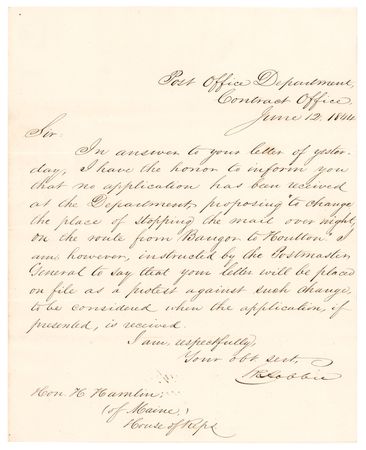 Post Office Department,
Contract Office,
June 12 1844
Sir.
In answer to your letter of yester-
day, I have the honor to inform you
that no application has been received
at the Department, proposing to change
the place of stopping the mail over night,
on the route from Bangor to Houlton. I
am, however, instructed by the Postmaster
General to say that your letter will be placed
on file as a protest against such change,
to be considered when the application, if
presented, is received.
I am, respectfully,
Your obt servt,
Hobbie
Hon. H. Hamlin,
(of Maine,)
House of Reps